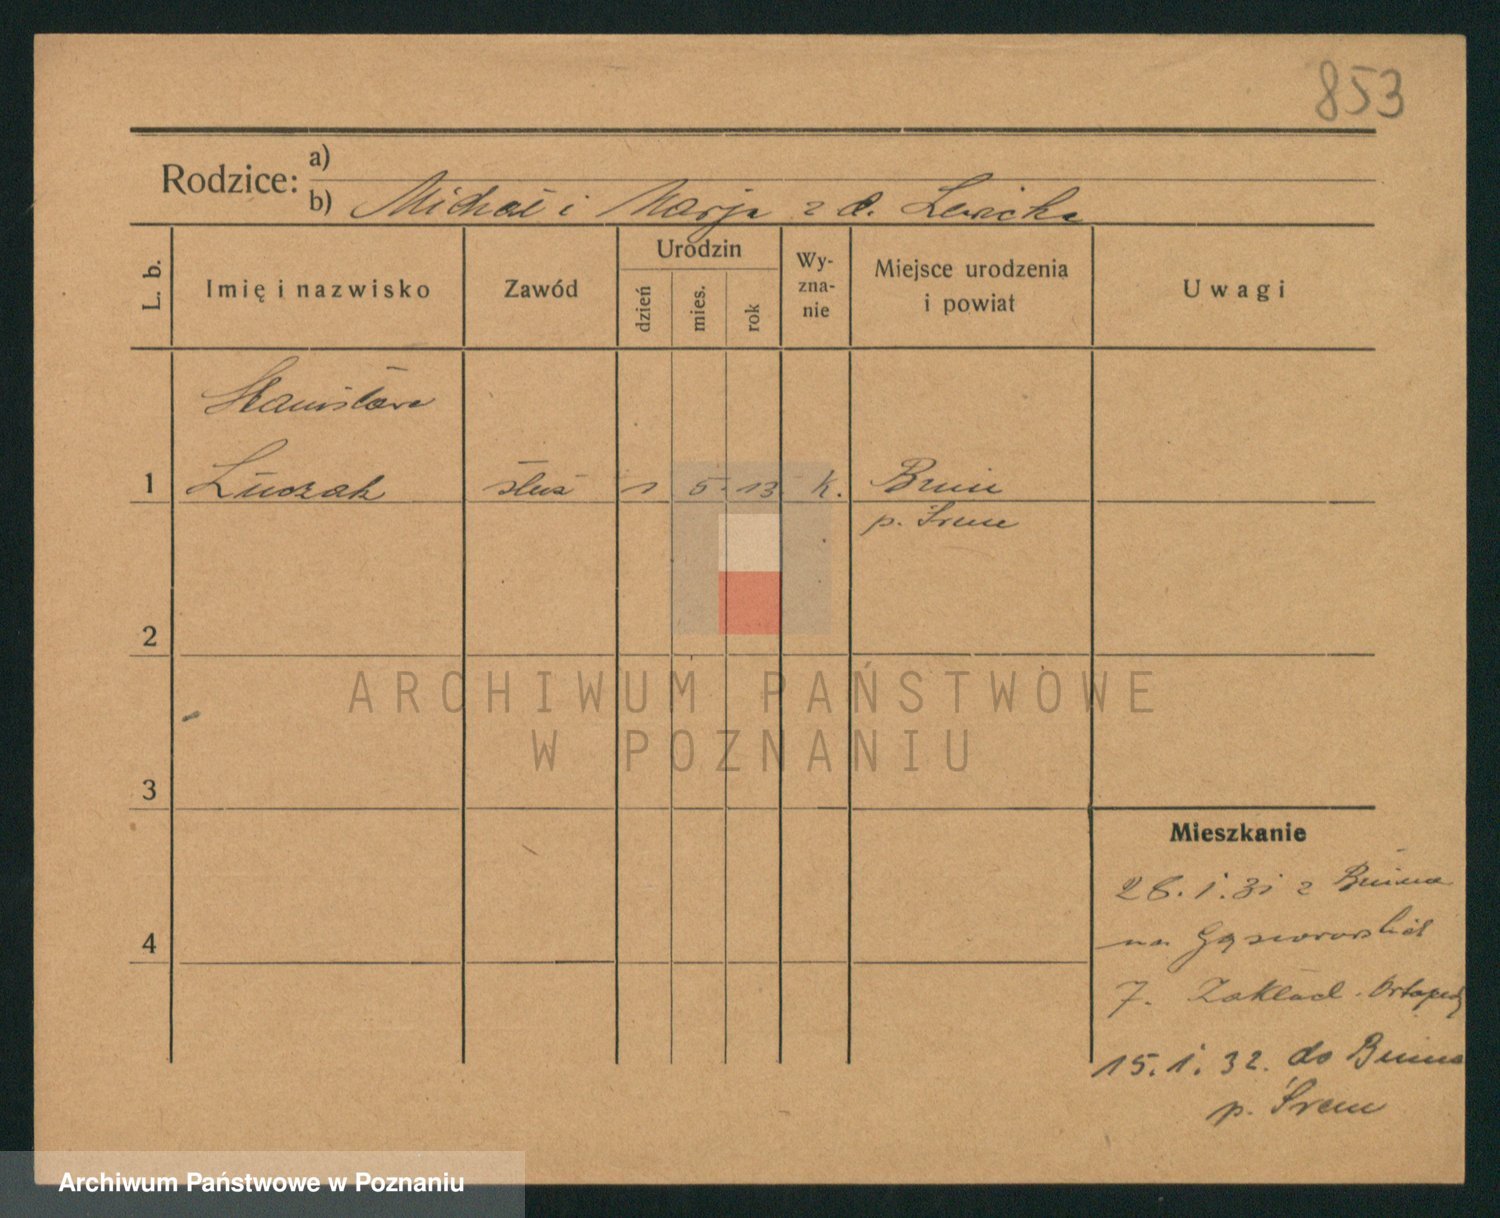 853
Rodzice:
a)
b) Michał i Marja z d. Lewicka
L. b.
Imię i nazwisko
Zawód
Urodzin
dzień
mies.
rok
Wy-
zna-
nie
Miejsce urodzenia
i powiat
Uwagi
Stanisława
1 Łuczak służ 1 5. 13 k. Bnin
p. Śrem
2
3
4
ARCHIWUM PAŃSTWOWE
W POZNANIU
Mieszkanie
28. 1. 31 z Bnina
na Gąsiorowskich
7. Zakład. Ortoped
15. 1. 32. do Bnina
p. Śrem
Archiwum Państwowe w Poznaniu